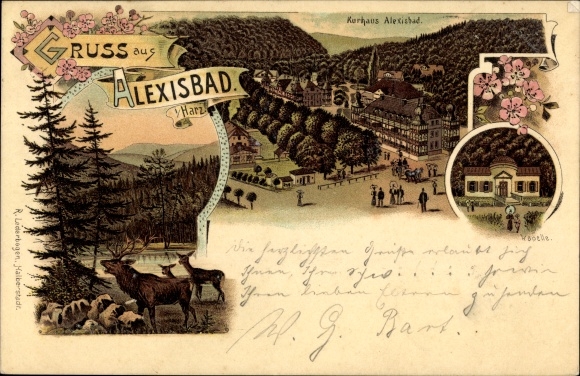 GRUSS aus
ALEXISBAD.
i/Harz
Kurhaus Alexisbad.
Kapelle.
R. Lederbogen, Halberstadt.
Die herzlichsten Grüße erlaubt sich
Ihnen, Ihre schw . . . . . sowie
Ihren lieben Eltern zu senden
W. G. Bart . .